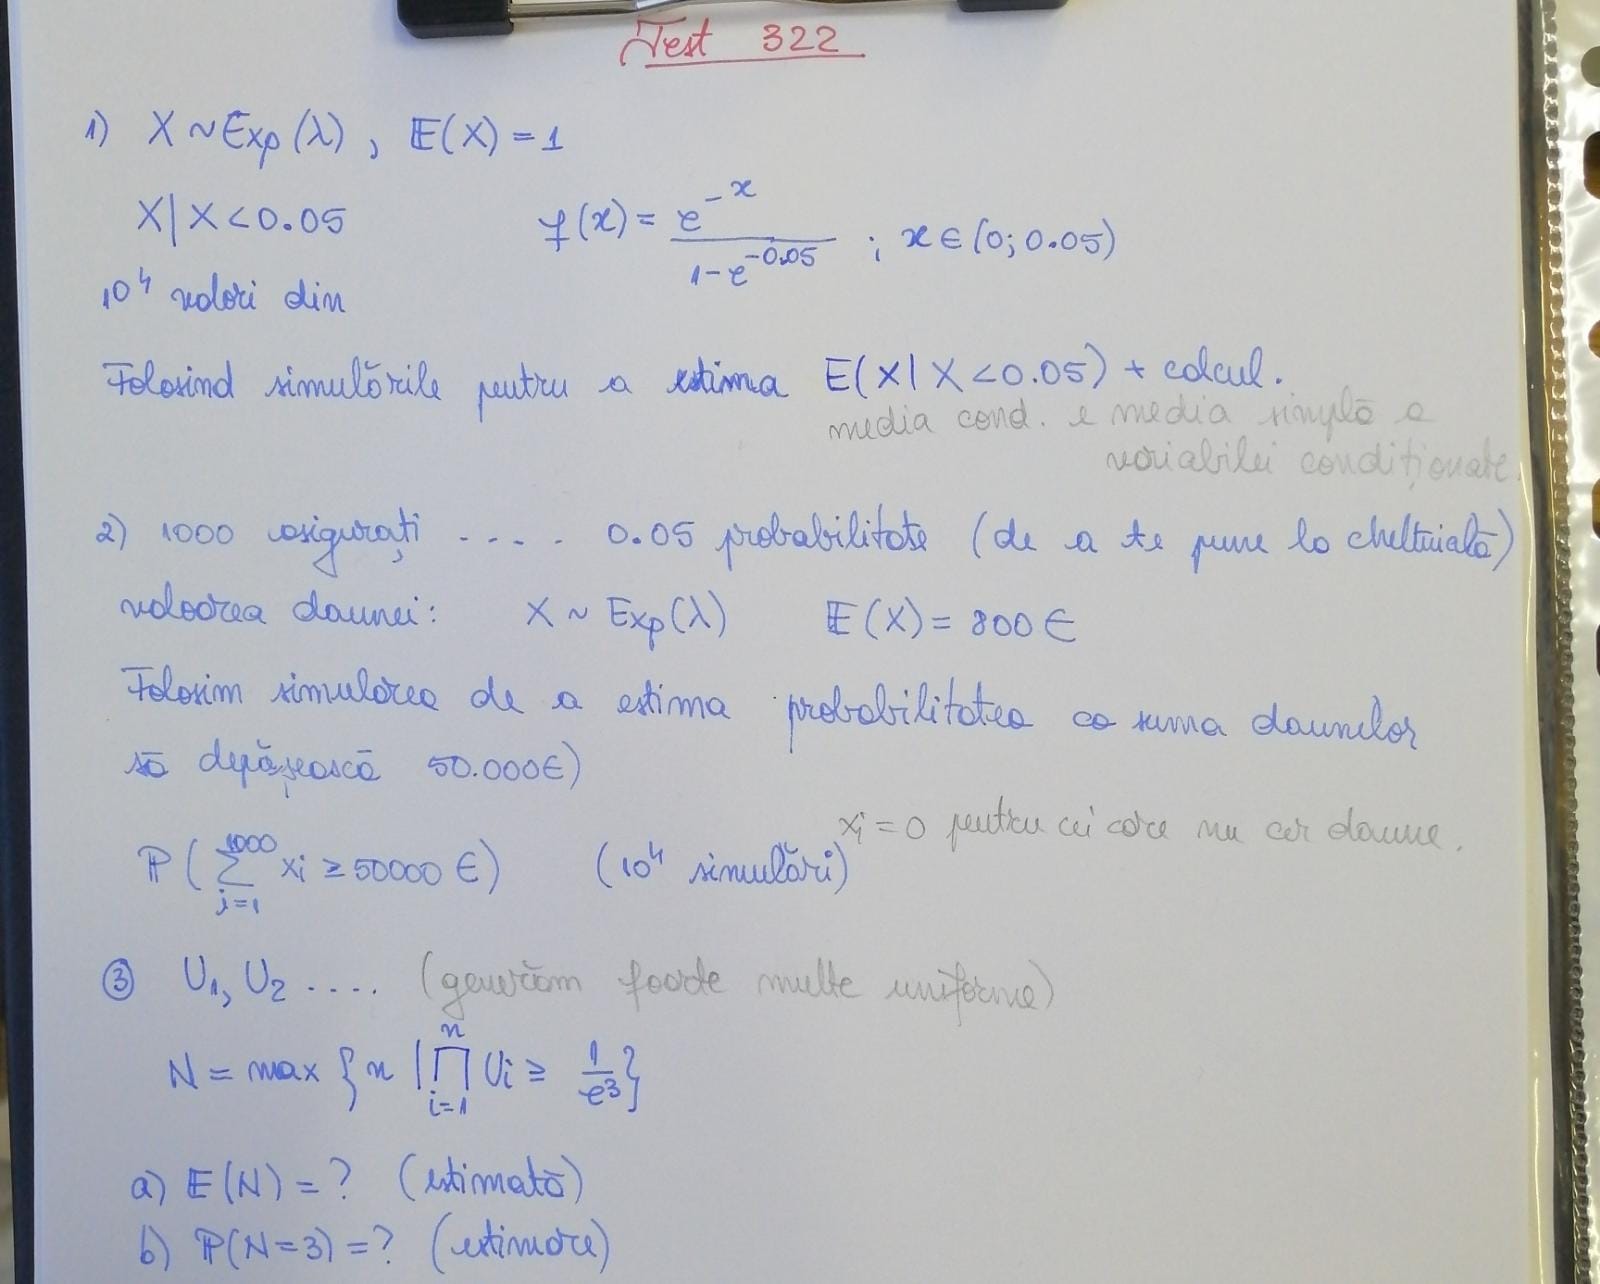 Test 322
1) X ~ Exp(λ), E(X) = 1
X | X < 0.05 f(x) = e^{-x} / (1 - e^{-0.05}) ; x ∈ (0; 0.05)
10^4 valori din
Folosind simulările pentru a estima E(X | X < 0.05) + calcul.
media cond. e media simplă a
variabilei condiționate.
2) 1000 asigurați .... 0.05 probabilitate (de a te pune la cheltuială)
valoarea daunei: X ~ Exp(λ) E(X) = 800 €
Folosim simularea de a estima probabilitatea ca suma daunelor
să depășească 50.000€)
xi = 0 pentru cei care nu cer daune.
P(∑_{i=1}^{1000} xi ≥ 50000 €) (10^4 simulări)
③ U1, U2 .... (generăm foarte multe uniforme)
N = max {n | ∏_{i=1}^{n} Ui ≥ 1/e^3}
a) E(N) = ? (estimată)
b) P(N=3) = ? (estimare)